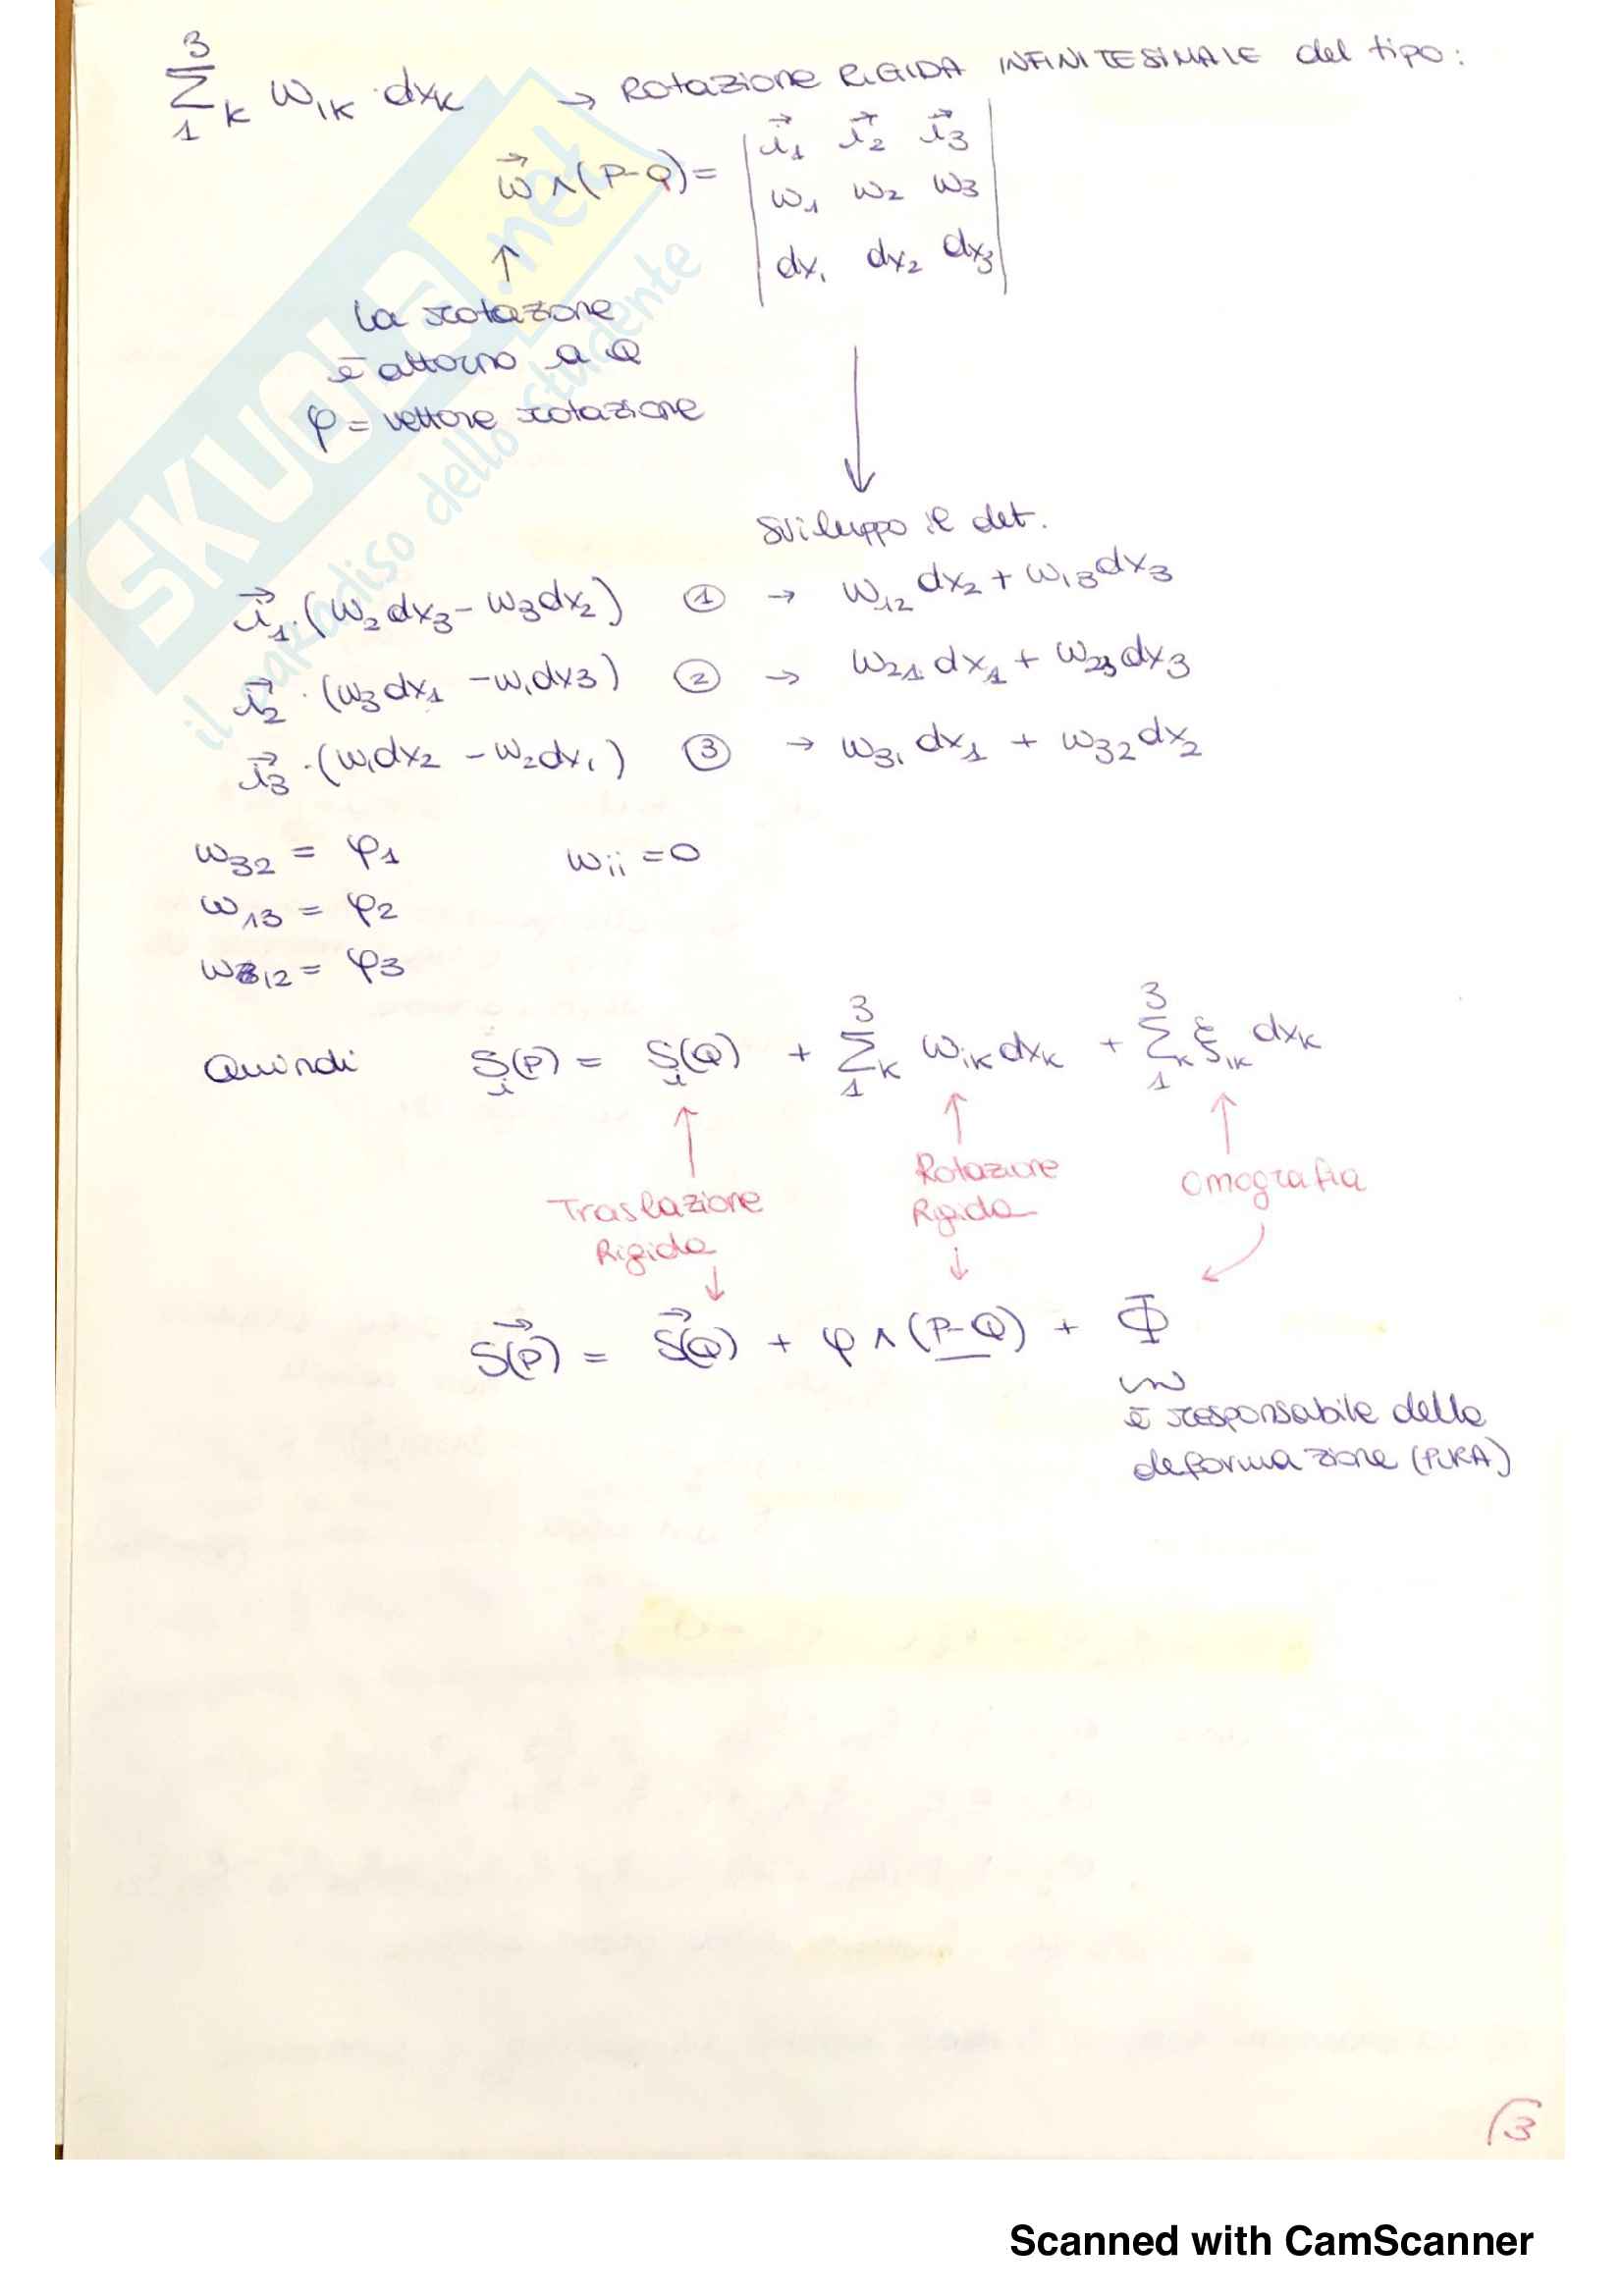 3
Σ_k ω_ik · dx_k → Rotazione RIGIDA INFINITESIMALE del tipo:
1
ω⃗ ∧ (P-Q) = | i⃗_1 i⃗_2 i⃗_3 |
| ω_1 ω_2 ω_3 |
| dx_1 dx_2 dx_3 |
↑
la rotazione
è attorno a Q
φ = vettore rotazione
↓
Sviluppo il det.
i⃗_1 · (ω_2 dx_3 - ω_3 dx_2) ① → ω_12 dx_2 + ω_13 dx_3
i⃗_2 · (ω_3 dx_1 - ω_1 dx_3) ② → ω_21 dx_1 + ω_23 dx_3
i⃗_3 · (ω_1 dx_2 - ω_2 dx_1) ③ → ω_31 dx_1 + ω_32 dx_2
ω_32 = φ_1 ω_ii = 0
ω_13 = φ_2
ω_12 = φ_3
Quindi S_i(P) = S_i(Q) + Σ_k ω_ik dx_k + Σ_k ξ_ik dx_k
Traslazione Rigida
Rotazione Rigida
Omografia
S⃗(P) = S⃗(Q) + φ ∧ (P-Q) + Φ
è responsabile della
deformazione (PURA)
3
SKUOLA.net
il paradiso dello studente
Scanned with CamScanner